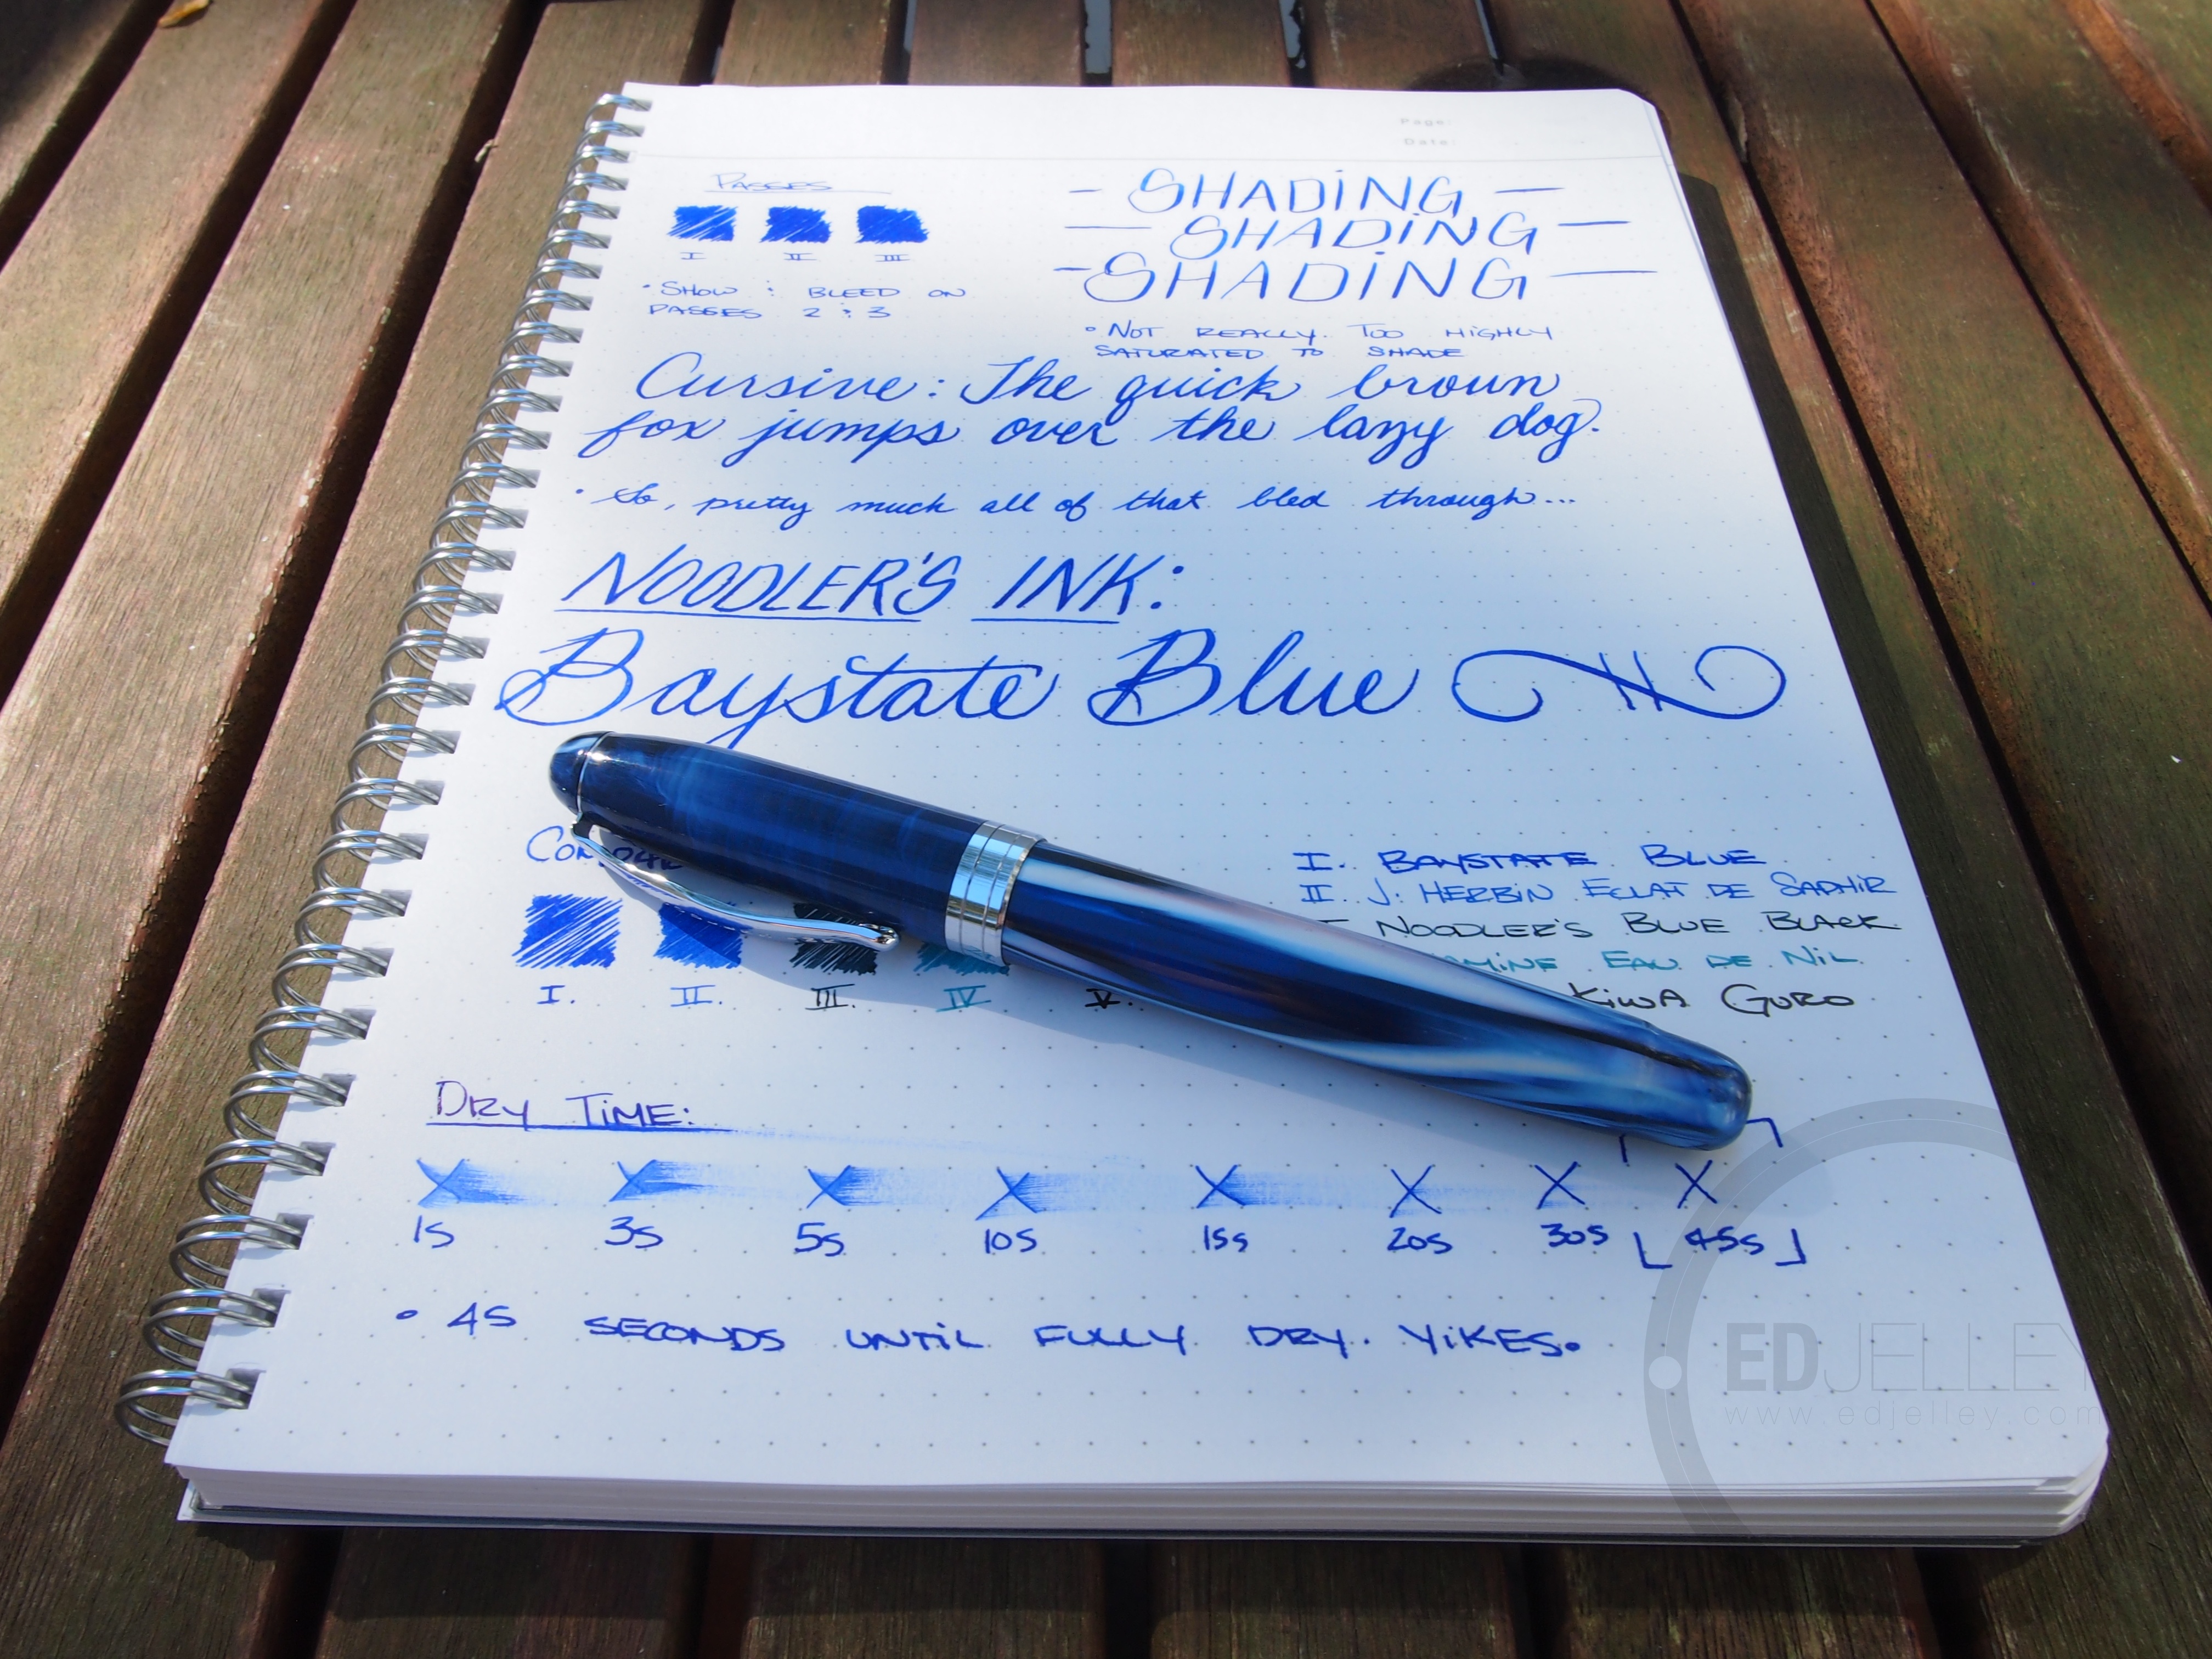 Page:
Date:
PASSES
I II III
• SHOW & BLEED ON
PASSES 2 & 3
- SHADING -
- SHADING -
- SHADING -
• NOT REALLY. TOO HIGHLY
SATURATED TO SHADE
Cursive: The quick brown
fox jumps over the lazy dog.
• So, pretty much all of that bled through...
NOODLER'S INK:
Baystate Blue
I. II. III. IV. V.
I. BAYSTATE BLUE
II. J. HERBIN ECLAT DE SAPHIR
NOODLER'S BLUE BLACK
EAU DE NIL
KIWA GURO
DRY TIME:
X X X X X X X X
1s 3s 5s 10s 15s 20s 30s [45s]
• 45 SECONDS UNTIL FULLY DRY. YIKES.
EDJELLEY
www.edjelley.com